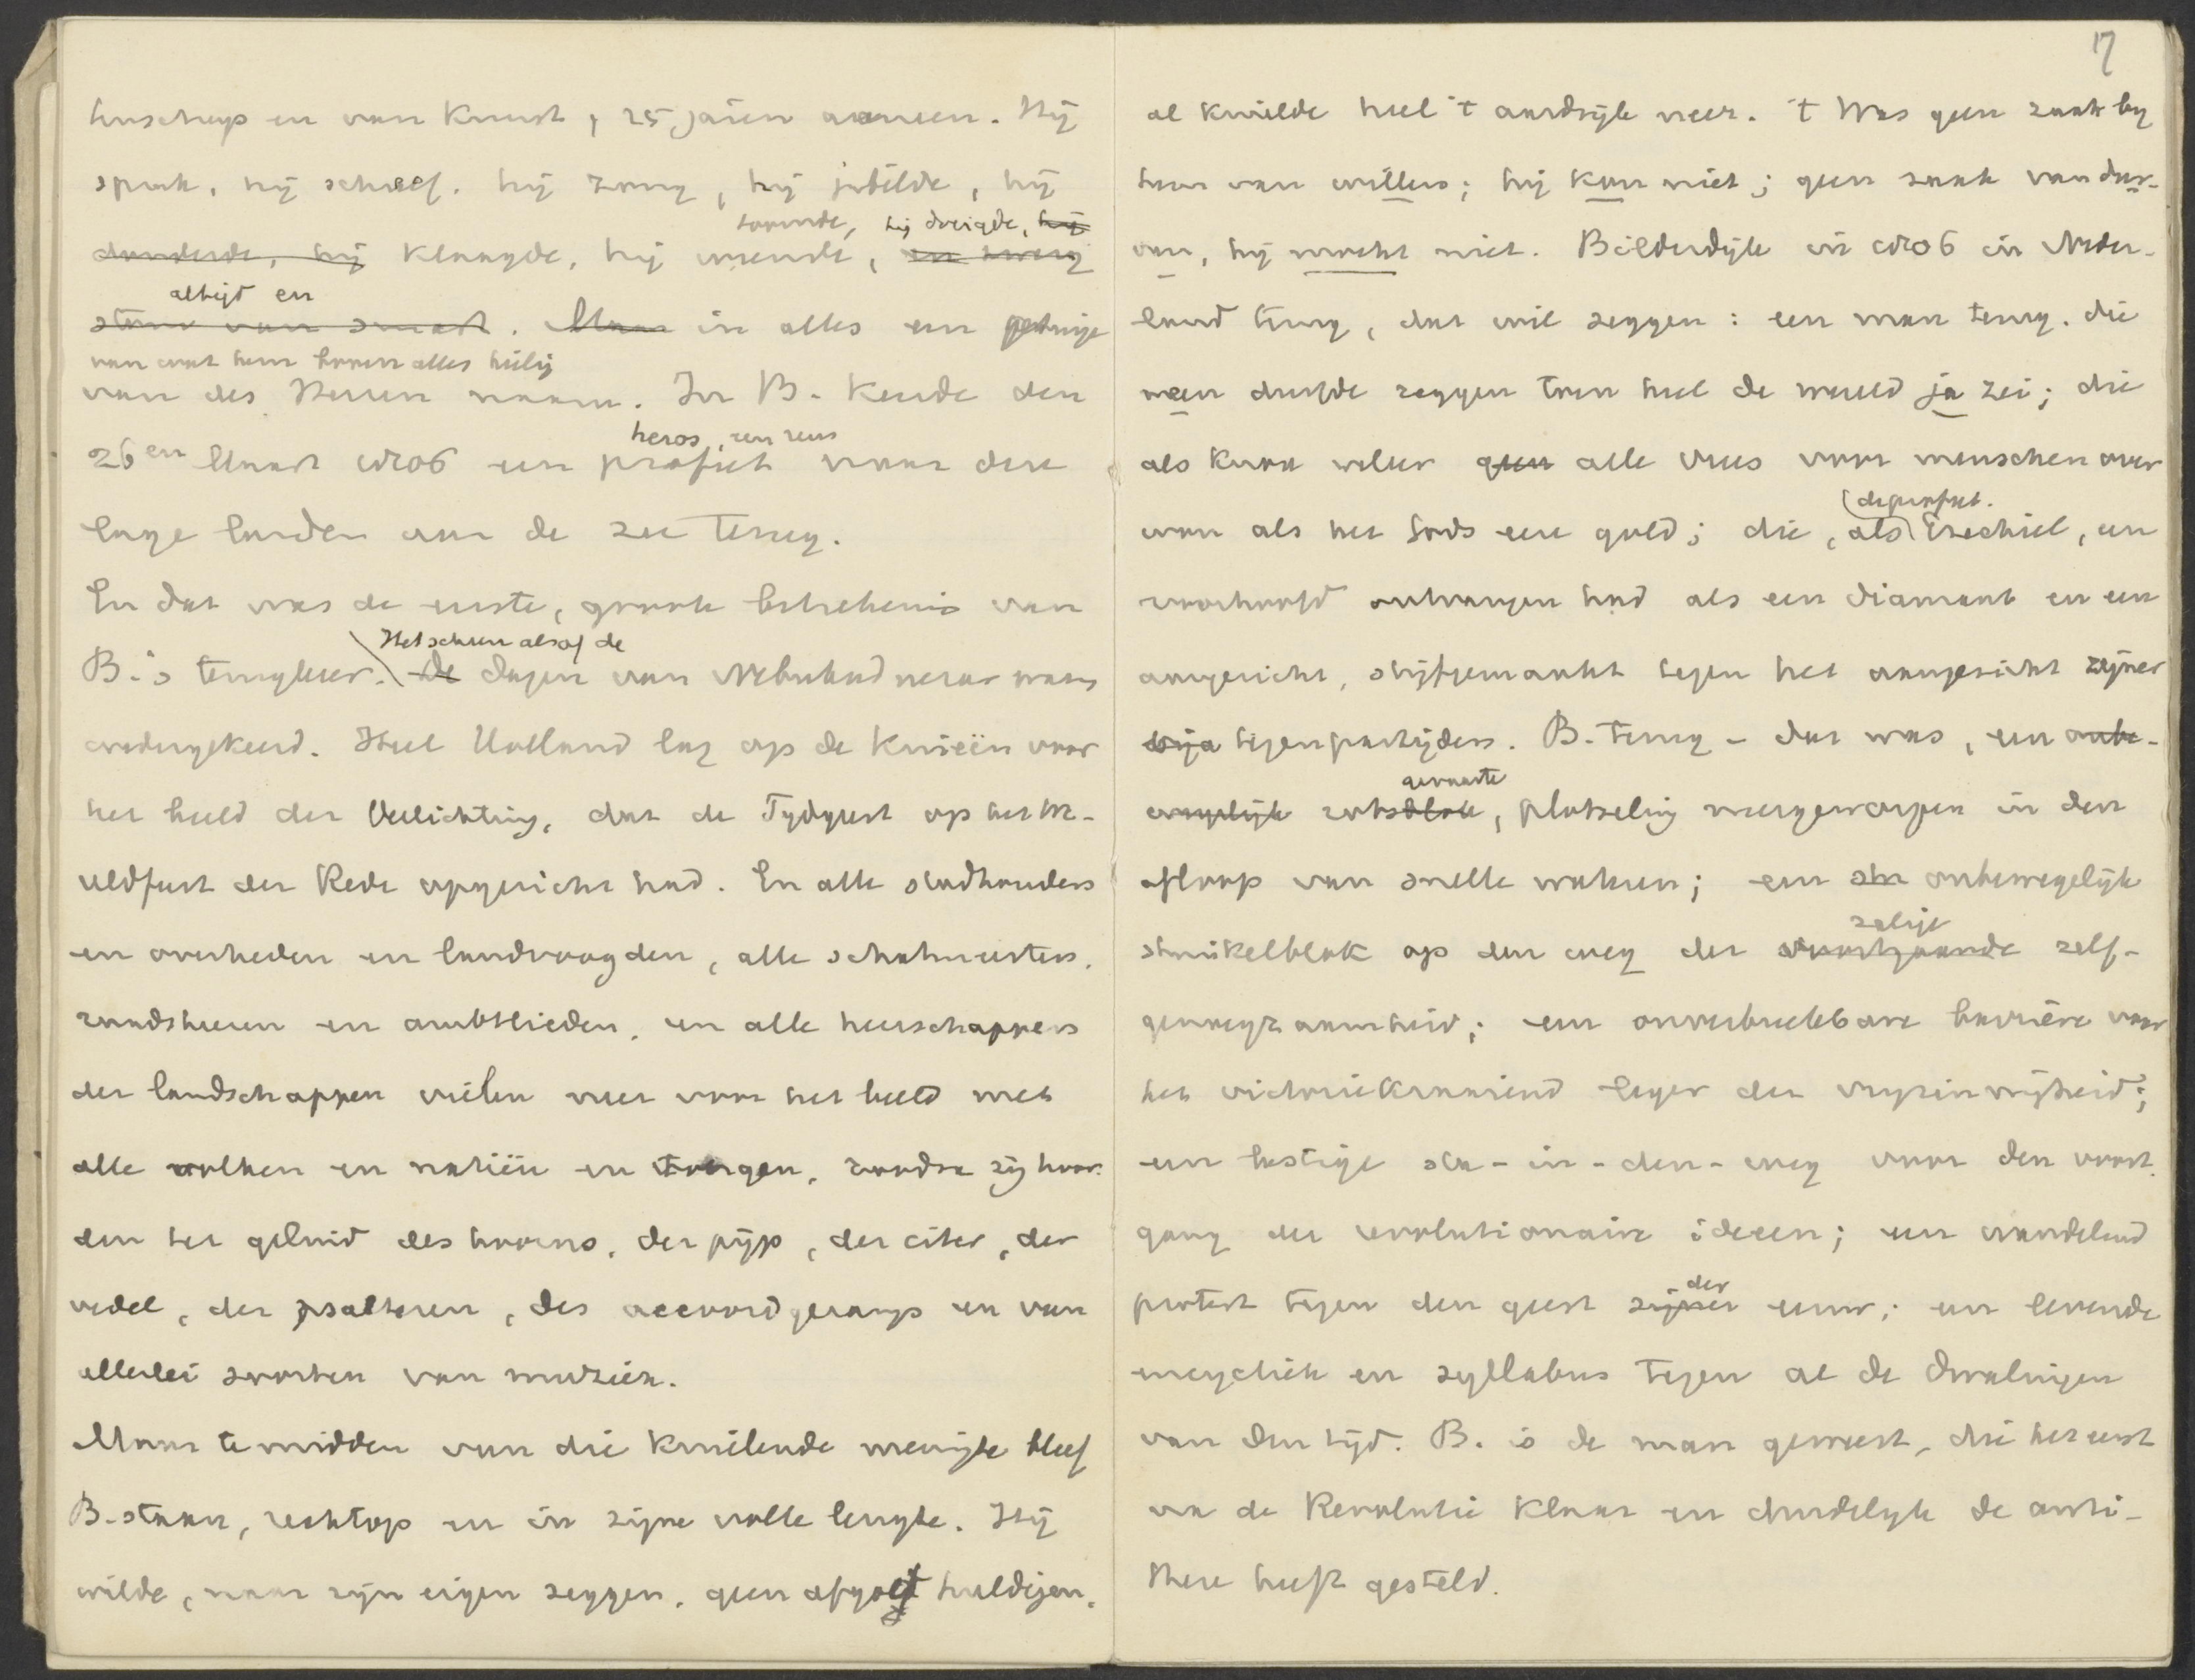 17
tenschap en van Kunst, 25 jaren aaneen. Hij
sprak, hij schreef. hij zong, hij jubelde, hij
toornde, hij dreigde, hij
donderde, hij klaagde, hij weende, en zweeg
altijd en
stom van smart. Maar in alles een getuige
van wat hem boven alles heilig
van des Heeren naam. In B. keerde den
heros, een reus
26en Maart 1806 een profeet naar deze
lage landen aan de zee terug.
En dat was de eerste, groote beteekenis van
Het scheen alsof de
B.'s terugkeer. De dagen van Nebukadnezar waren
wedergekeerd. Heel Holland lag op de knieën voor
het beeld der Verlichting, dat de Tijdgeest op het W-
veldfeest der Rede opgericht had. En alle stadhouders
en overheden en landvoogden, alle schatmeesters,
raadsheeren en ambtlieden, en alle heerschappers
der landschappen vielen neer voor het beeld met
alle volken en natiën en tongen, zoodra zij hoor-
den het geluid des hoorns, der pijp, der citer, der
vedel, der psalteren, des accoordgezangs en van
allerlei soorten van muziek.
Maar te midden van die knielende menigte bleef
B. staan, rechtop en in zijne volle lengte. Hij
wilde, naar zijn eigen zeggen, geen afgod huldigen,
al knielde heel 't aardrijk neer. 't Was geen zaak bij
hem van willen; hij kon niet; geen zaak van dur-
ven, hij mocht niet. Bilderdijk in 1806 in Neder-
land terug, dat wil zeggen: een man terug, die
neen durfde zeggen toen heel de wereld ja zei; die
als knaap alle vrees voor menschen over
(de profeet.
won als het Gods eere gold; die, als Ezechiel, een
voorhoofd ontvangen had als een diamant en een
aangezicht, stijfgemaakt tegen het aangezicht zijner
tegenpartijders. B. terug - dat was, een onbe-
gevaarte
wegelijk rotsblok, plotseling neergeworpen in den
afloop van snelle wateren; een onbewegelijk
zalige
struikelblok op den weg der voortgaande zelf-
genoegzaamheid; een onverbreekbare barrière voor
het victoriekraaiend leger der vrijzinnigheid;
een lastige sta-in-den-weg voor den voort-
gang der revolutionaire ideeen; een wandelend
der
protest tegen den geest zijner eeuw; een levende
encycliek en syllabus tegen al de dwalingen
van den tijd. B. is de man geweest, die het eerst
na de Revolutie klaar en duidelijk de anti-
these heeft gesteld.